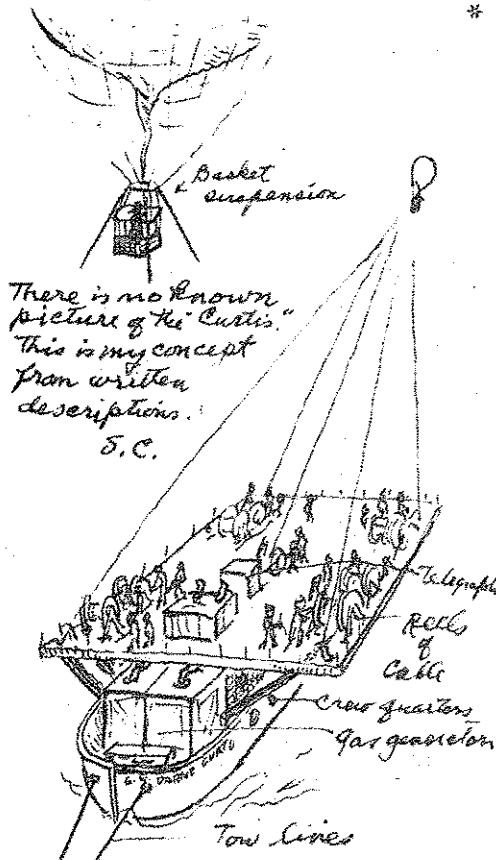 *
Basket
suspension
There is no known
picture of the "Curtis."
This is my concept
from written
descriptions.
S.C.
Telegraph
Reels
of
Cable
Crew quarters
Gas generators
Tow lines